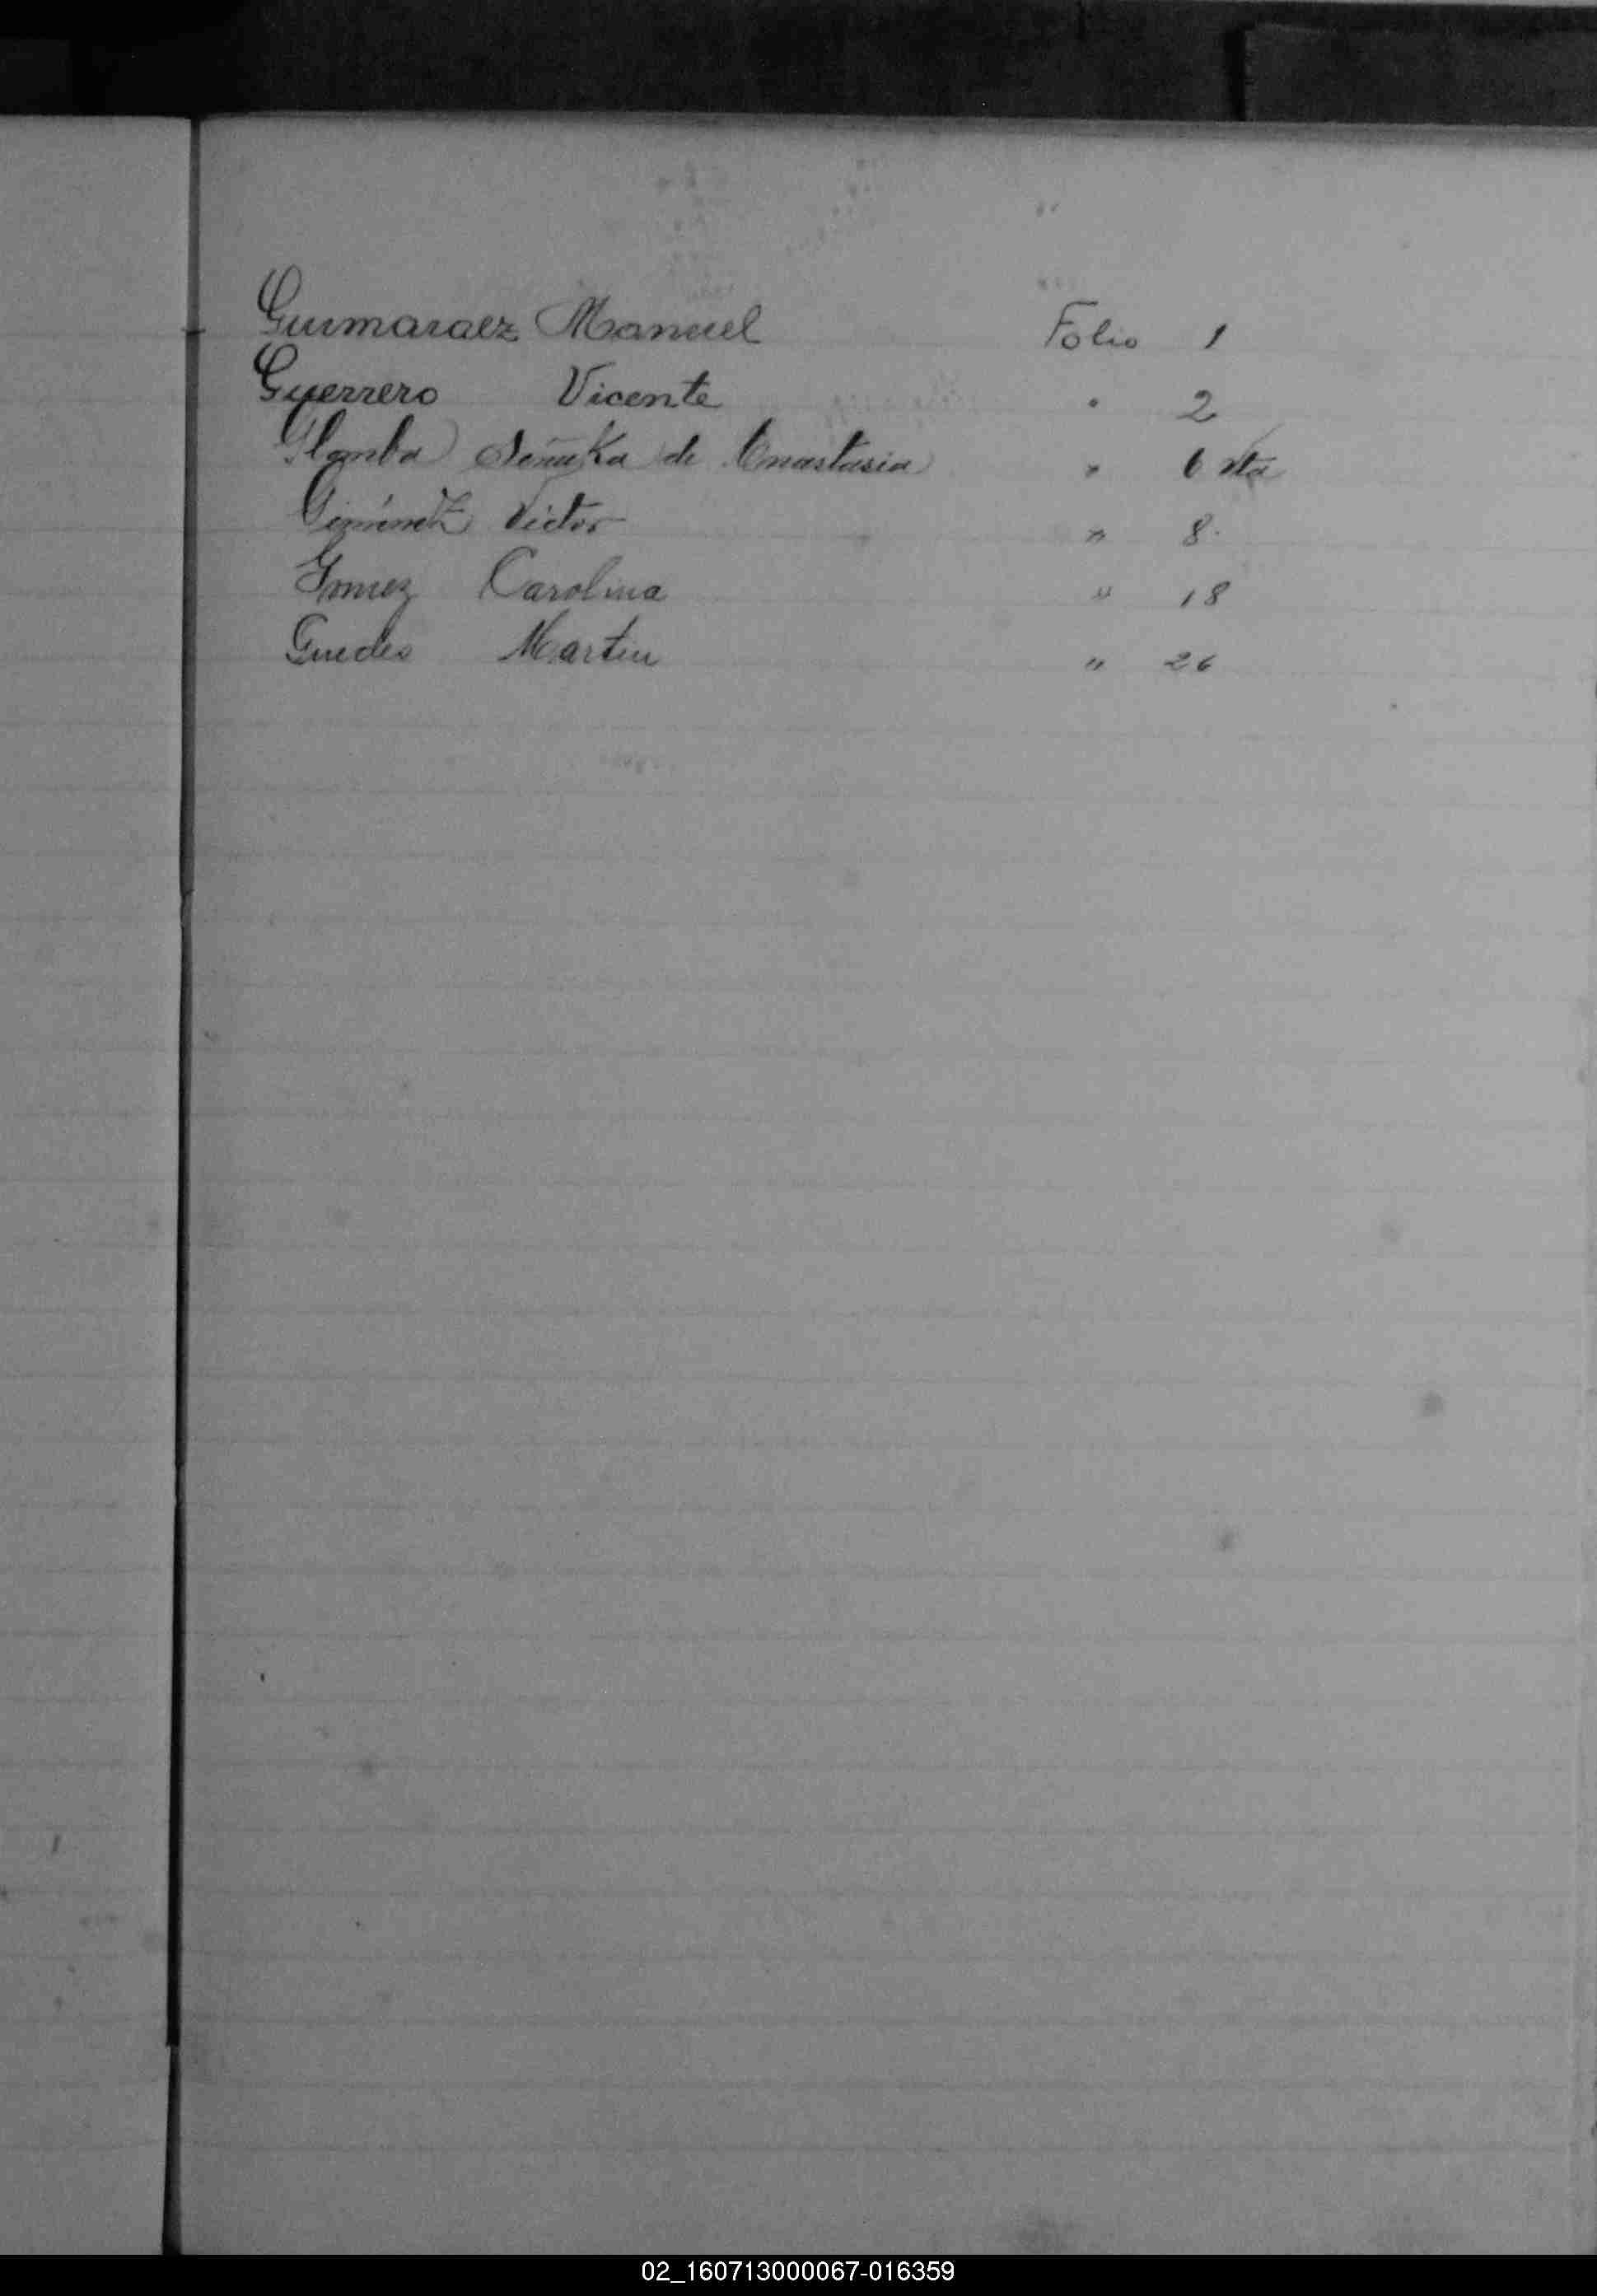 Guimaraez Manuel Folio 1
Guerrero Vicente " 2
de Anastasia " 6 vta
Giménez Victor " 8.
Gomez Carolina " 18
Guedes Martin " 26
02_160713000067-016359